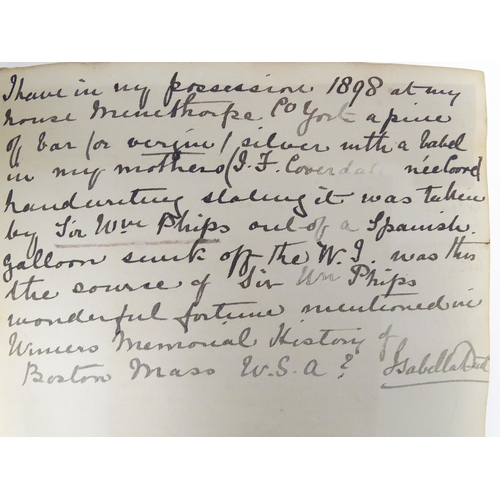 I have in my possession 1898 at my
house Menethorpe Co York a piece
of bar (or vergin) silver with a label
in my mothers (I. F. Coverdale née
handwriting stating it was taken
by Sir Wm Phips out of a Spanish
galloon sunk off the W.I. was this
the sourse of Sir Wm Phips
wonderful fortune mentioned in
Winsers Memorial History of
Boston Mass U.S.A?
Isabella